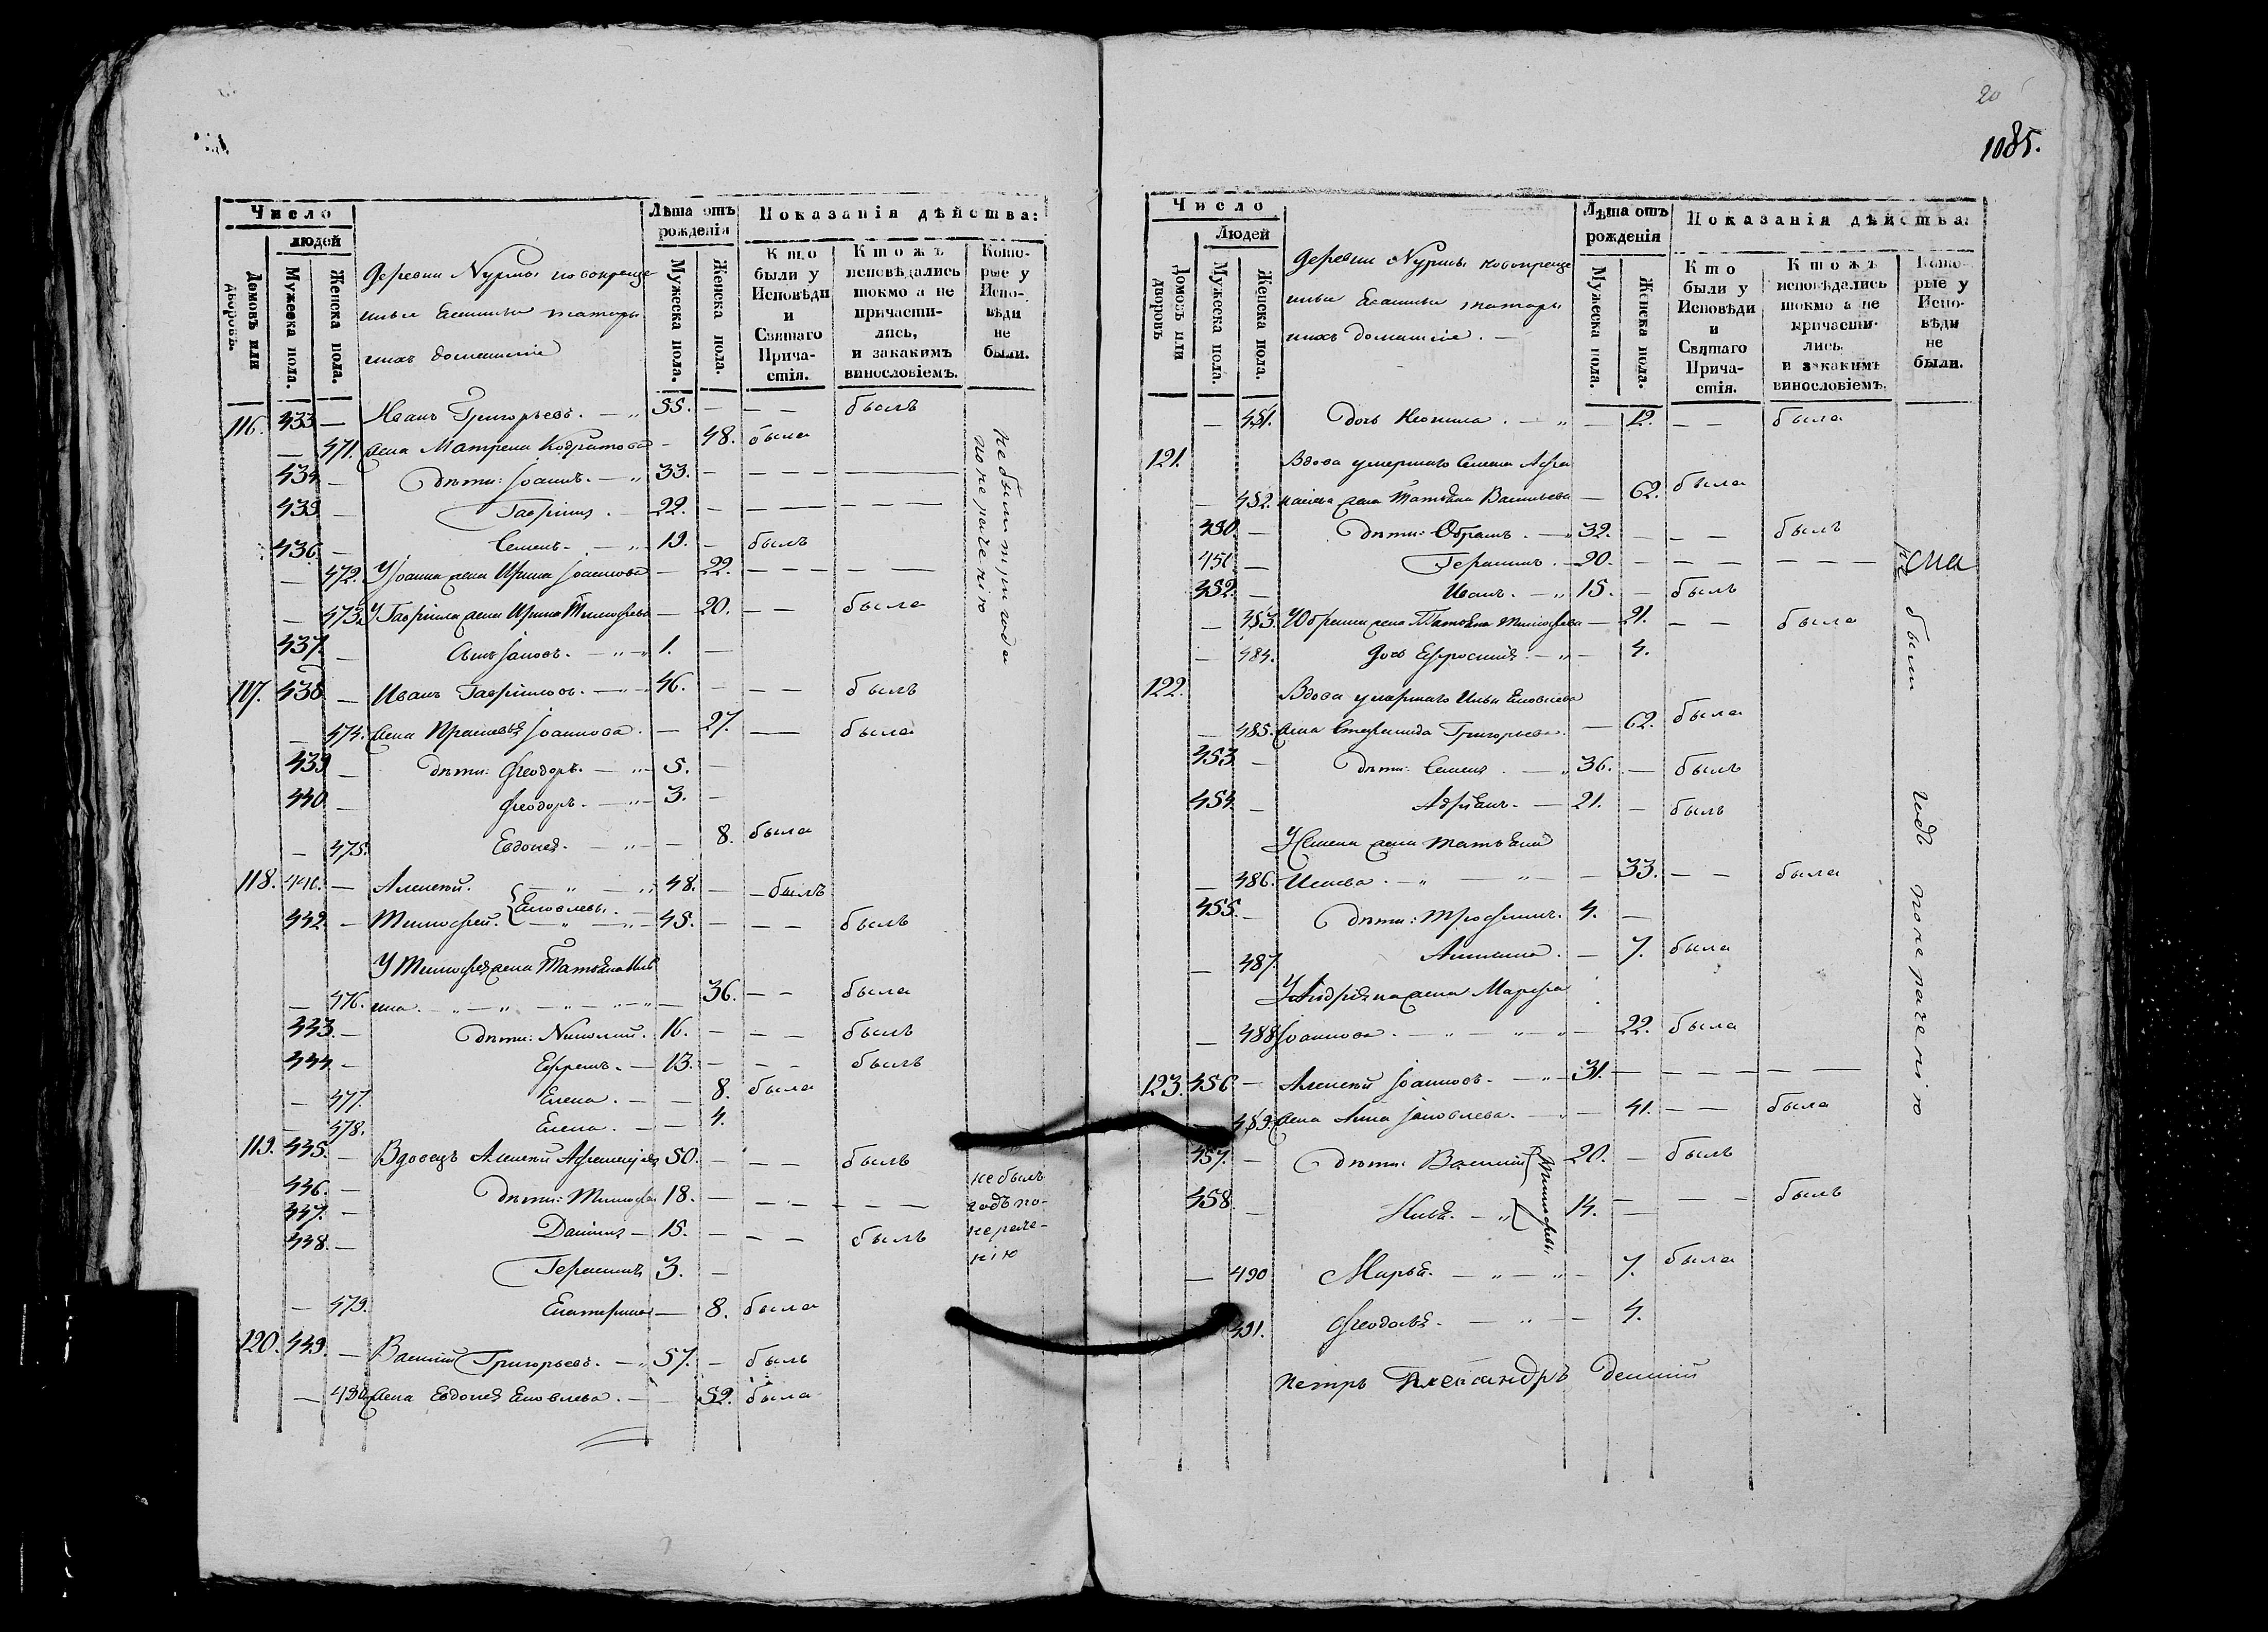 20
1085.
Число
людей
Домовъ или дворовъ.
Мужеска пола.
Женска пола.
деревни Нурмы новокреще
ные
домашніе
Лѣта отъ рожденія
Мужеска пола.
Женска пола.
Показанія дѣйства:
Кто были у Исповѣди и Святаго Причастія.
Ктожъ исповѣдались токмо а не причастились, и закакимъ винословіемъ.
Которые у Исповѣди не были.
116. 433. — Иванъ Григорьевъ. — 55. — — — былъ
— 471. жена Матрена — 48. была
434. — дѣти: Іоаннъ. — 33. — — — —
435. — Гавріилъ. — 22. — — — —
436. — Семенъ. — 19. — былъ
— 472. У Іоанна жена Ирина Іоаннова — 22. — — — —
— 473. У Гавріила жена Ирина Тимофѣева — 20. — — была
437. — сынъ Іаковъ. — 1. —
не были три года по нераченію
117. 438. — Иванъ Гавріиловъ. — 46. — — — былъ
— 474. жена Прасковья Іоаннова. — 27. — была
439. — дѣти: Ѳеодоръ. — 5. —
440. — Ѳеодоръ. — 3. —
— 475. Евдокея. — — 8. была
118. 441. — Алексѣй. — 48. — былъ
Яковлевы.
442. — Тимофей. — 45. — — — былъ
У Тимофея жена Татьяна
— 476. — 36. — — была
443. — дѣти: Николай. 16. — — — былъ
444. — Ефремъ. — 13. — — — былъ
— 477. Елена. — — 8. была
— 478. Елена. — — 4.
119. 445. — Вдовецъ Алексѣй 50. — — — былъ
446. — дѣти: Тимофей 18. — — — — — —
447. — Даніилъ — 15. — — — былъ
448. — Герасимъ 3. —
не былъ годъ по нераченію
— 479. Екатерина — 8. была
120. 449. — Василій Григорьевъ. — 57. — былъ
— 480. жена Евдокея Яковлева. — — 52. была
Число
Людей
Домовъ или дворовъ
Мужеска пола.
Женска пола.
деревни Нурмы новокреще
ные
домашніе. —
Лѣта отъ рожденія
Мужеска пола.
Женска пола.
Показанія дѣйства:
Кто были у Исповѣди и Святаго Причастія.
Ктожъ исповѣдались токмо а не причастились. и закакимъ винословіемъ.
Которые у Исповѣди не были.
— 481. дочь — — 12. — — была
121. Вдова умершаго Семена
— 482. жена Татьяна Васильева — 62. была
450. — дѣти: — 32. — — — былъ
451. — Герасимъ. — 20. — — — — —
452. — Иванъ. — 15. — былъ
— 483. жена Татьяна Тимофѣева — 21. — — была
— 484. дочь Ефросинія. — — 4.
122. Вдова умершаго Ильи Яковлева
— 485. жена Степанида Григорьева. — 62. была
453. — дѣти: Семенъ. — 36. — былъ
454. — Адріанъ. — 21. — былъ
У Семена жена Татьяна
— 486. — 33. — — была
455. — дѣти: Трофимъ. 4. —
— 487. — 7. была
У Андріяна жена Марфа
— 488. Іоаннова. — 22. была
123. 456. — Алексѣй Іоанновъ. — 31. — — — — —
— 489. жена Анна Іаковлева. — 41. — — была
457. — дѣти: Василій 20. — былъ
Тимофѣевы
458. — — 14. — — — былъ
— 490 Марья. — — 7. была
491. Ѳеодосья. — — 4.
были годъ по нераченію
Петръ Александръ